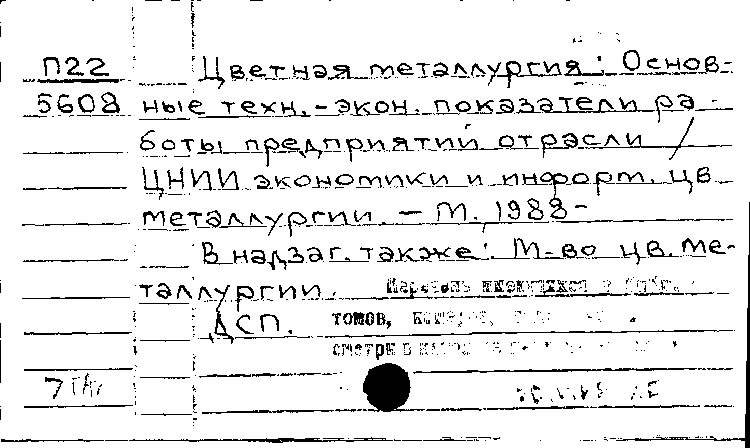 П22 Цветная металлургия: Основ-
5608 ные техн.-экон. показатели ра-
боты предприятий отрасли /
ЦНИИ экономики и информ. цв.
металлургии. – М., 1988-
В надзаг. также: М-во цв. ме-
таллургии. Перечень имеющихся в
ДСП. томов,
смотри в
7